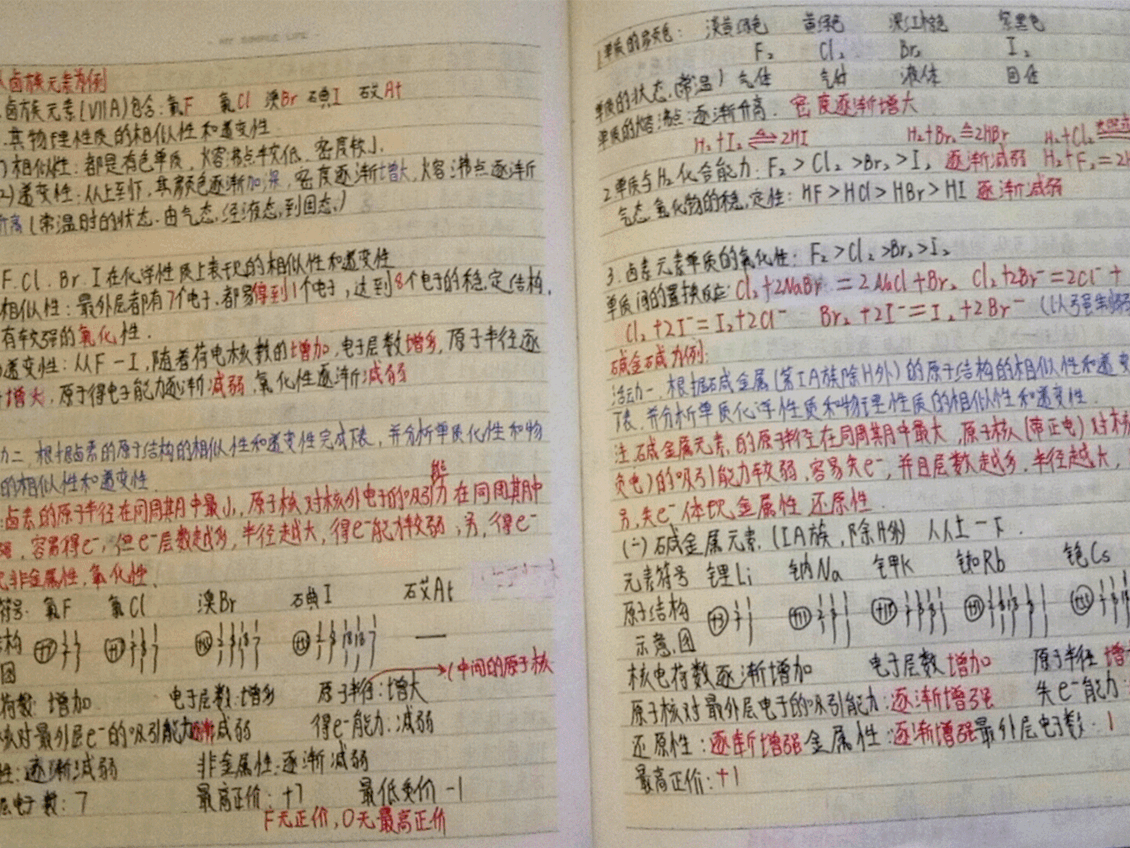 MY SIMPLE LIFE
卤族元素为例
卤族元素(VIIA)包含:氟F 氯Cl 溴Br 碘I 砹At
其物理性质的相似性和递变性
相似性:都是有色单质,火容沸点较低、密度较小
(2)递变性:从上到下,其颜色逐渐加深,密度逐渐增大,火容沸点逐渐
升高(常温时的状态.由气态,经液态,到固态)
F.Cl.Br.I在化学性质上表现的相似性和递变性
相似性:最外层都有7个电子,都易得到1个电子,达到8个电子的稳定结构,
有较强的氧化性.
递变性:从F-I,随着荷电核数的增加,电子层数增多,原子半径逐
增大,原子得电子能力逐渐减弱,氧化性逐渐减弱
动二,根据卤素的原子结构的相似性和递变性完成下表,并分析单质化性和物
的相似性和递变性.
卤素的原子半径在同周期中最小,原子核对核外电子的吸引能力在同周期中
强,容易得e⁻,但e⁻层数越多,半径越大,得e⁻能力较弱,另,得e⁻
非金属性,氧化性.
符号:氟F 氯Cl 溴Br 碘I 砹At
结构
图 —
(中间的原子核
荷数:增加 电子层数:增多 原子半径:增大
核对最外层e⁻的吸引能力逐渐减弱 得e⁻能力:减弱
性:逐渐减弱 非金属性:逐渐减弱
层电子数:7 最高正价:+7 最低负价-1
F无正价,O无最高正价
1.单质的颜色: 淡黄绿色 黄绿色 深红棕色 紫黑色
F₂ Cl₂ Br₂ I₂
单质的状态.(常温)气体 气体 液体 固体
单质的熔沸点:逐渐升高. 密度逐渐增大
H₂+I₂⇌2HI H₂+Br₂≙2HBr H₂+Cl₂
2.单质与H₂化合能力:F₂>Cl₂>Br₂>I₂ 逐渐减弱 H₂+F₂=2H
气态氢化物的稳定性:HF>HCl>HBr>HI 逐渐减弱
3.卤素元素单质的氧化性:F₂>Cl₂>Br₂>I₂
单质间的置换反应Cl₂+2NaBr=2NaCl+Br₂ Cl₂+2Br⁻=2Cl⁻+
Cl₂+2I⁻=I₂+2Cl⁻ Br₂+2I⁻=I₂+2Br⁻ (以强制弱
碱金属为例:
活动一,根据碱金属(第IA族除H外)的原子结构的相似性和递变
下表,并分析单质化学性质和物理性质的相似性和递变性.
注.碱金属元素,的原子半径在同周期中最大,原子核(带正电)对核
负电)的吸引能力较弱,容易失e⁻,并且层数越多,半径越大,
另,失e⁻体现金属性,还原性.
(二)碱金属元素.(IA族,除H外) 从上一下.
元素符号 锂Li 钠Na 钾K 铷Rb 铯Cs
原子结构
示意图
核电荷数逐渐增加 电子层数增加 原子半径增
原子核对最外层电子的吸引能力:逐渐增强 失e⁻能力:
还原性:逐渐增强 金属性:逐渐增强最外层电子数:1
最高正价:+1